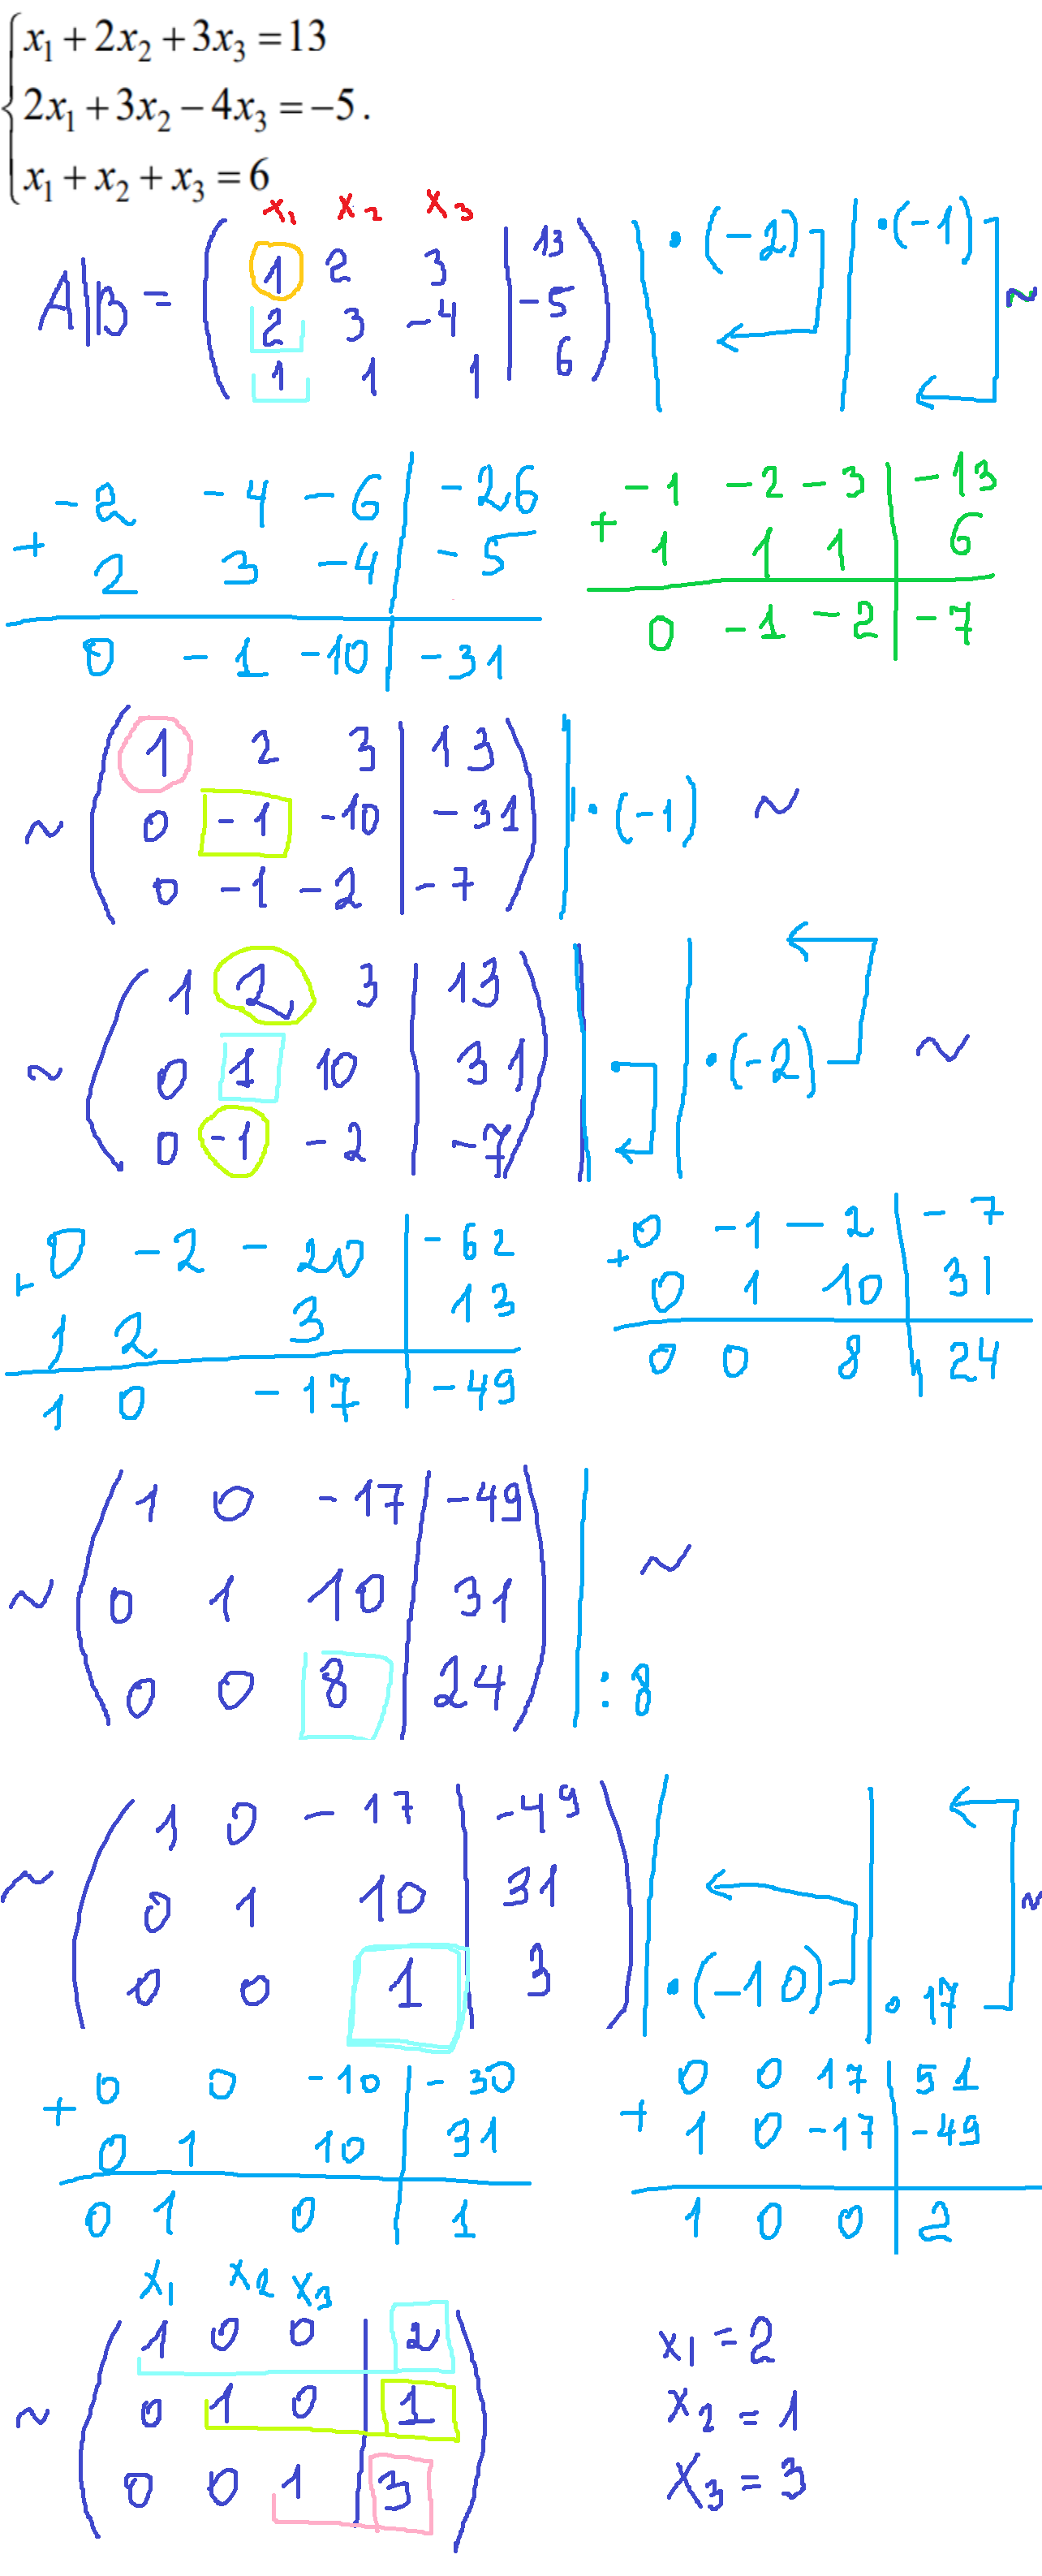 x₁ + 2x₂ + 3x₃ = 13
2x₁ + 3x₂ − 4x₃ = −5.
x₁ + x₂ + x₃ = 6
x₁ x₂ x₃
A|B = ( 1 2 3 | 13 ) | ·(−2) | ·(−1) ~
2 3 −4 | −5
1 1 1 | 6
−2 −4 −6 | −26
+ 2 3 −4 | −5
0 −1 −10 | −31
−1 −2 −3 | −13
+ 1 1 1 | 6
0 −1 −2 | −7
1 2 3 | 13
~ 0 −1 −10 | −31 | ·(−1) ~
0 −1 −2 | −7
1 2 3 | 13
~ 0 1 10 | 31 | · | ·(−2) ~
0 −1 −2 | −7
0 −2 −20 | −62
+ 1 2 3 | 13
1 0 −17 | −49
0 −1 −2 | −7
+ 0 1 10 | 31
0 0 8 | 24
1 0 −17 | −49 ~
~ 0 1 10 | 31
0 0 8 | 24 | :8
1 0 −17 | −49
~ 0 1 10 | 31 ~
0 0 1 | 3 | ·(−10) | ·17
0 0 −10 | −30
+ 0 1 10 | 31
0 1 0 | 1
0 0 17 | 51
+ 1 0 −17 | −49
1 0 0 | 2
x₁ x₂ x₃
1 0 0 | 2
~ 0 1 0 | 1
0 0 1 | 3
x₁ = 2
x₂ = 1
x₃ = 3